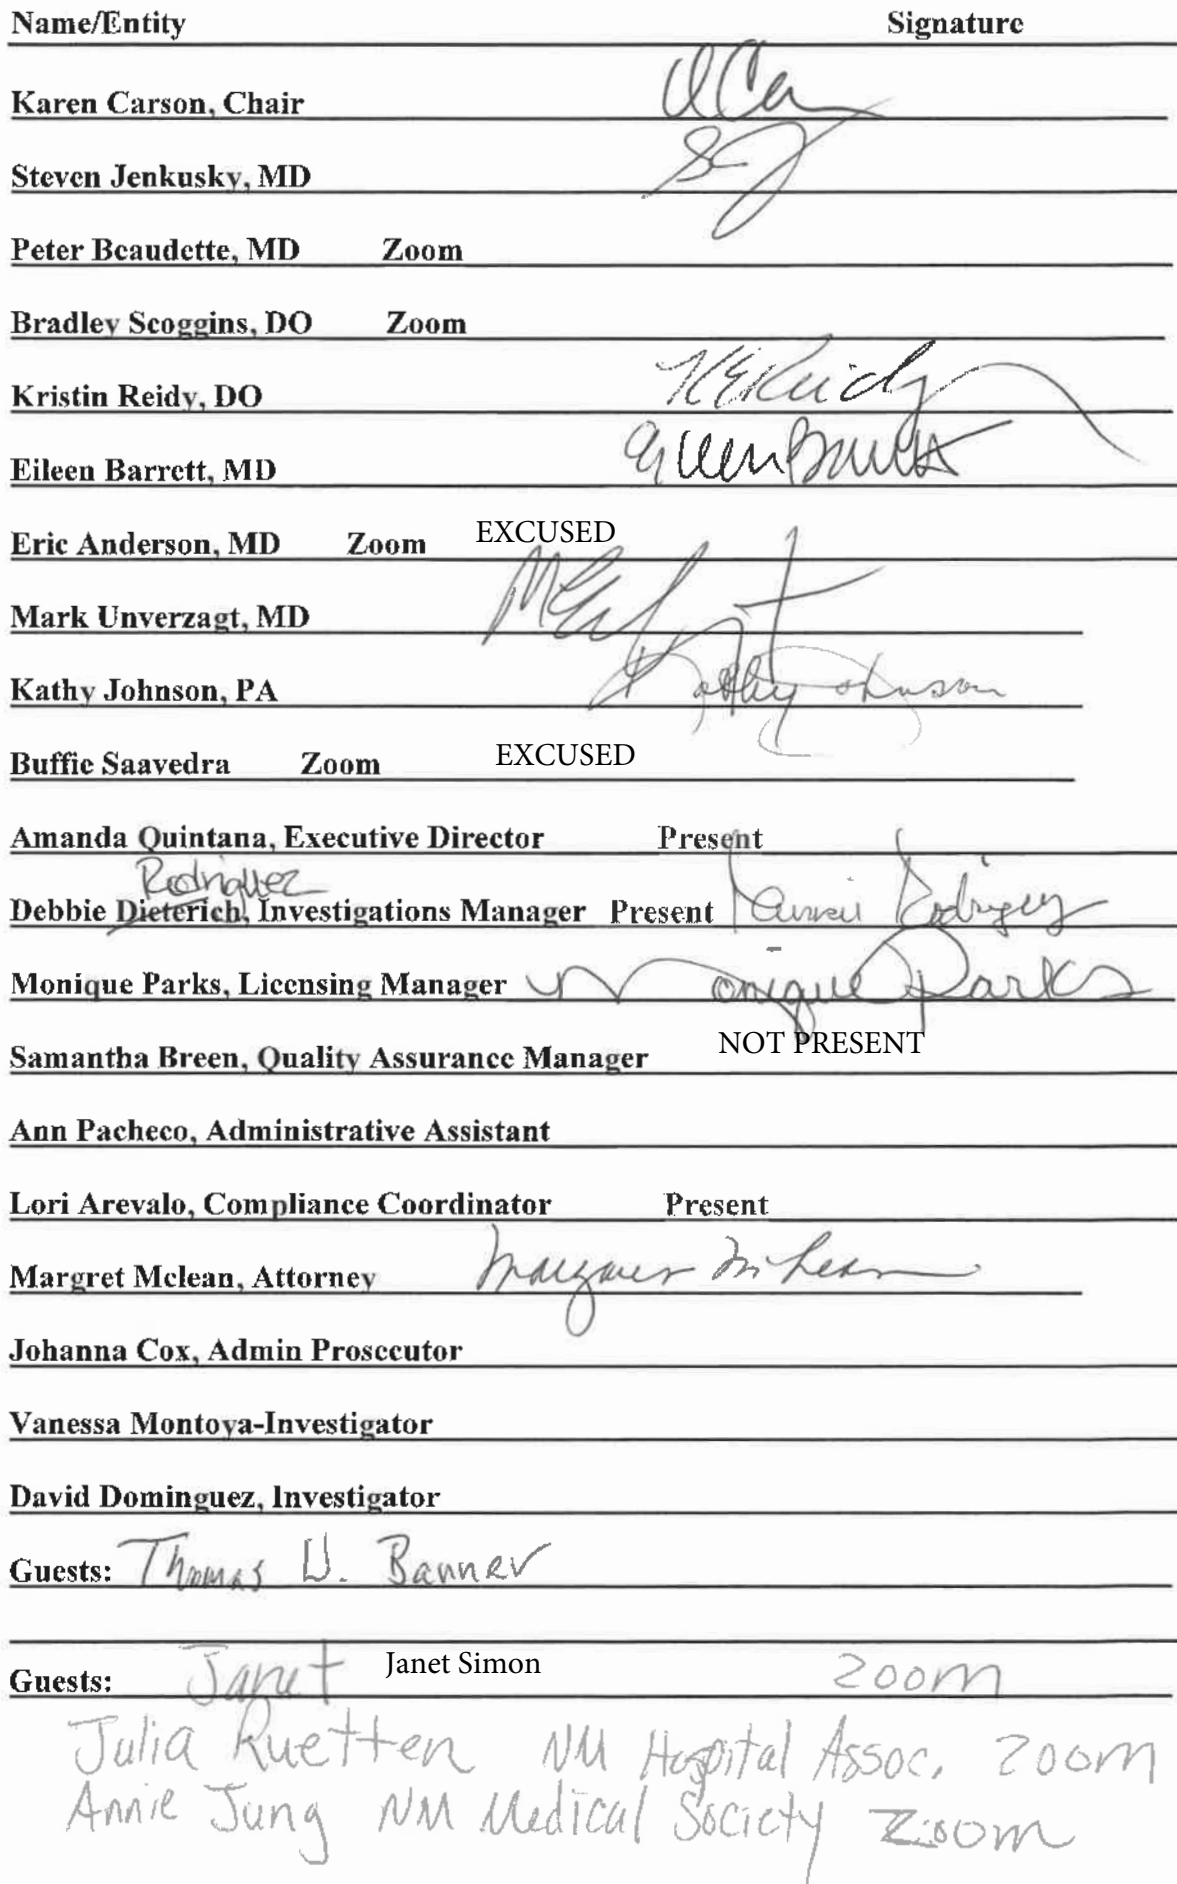 Name/Entity Signature
Karen Carson, Chair
Steven Jenkusky, MD
Peter Beaudette, MD Zoom
Bradley Scoggins, DO Zoom
Kristin Reidy, DO KEReidy
Eileen Barrett, MD Eileen Barrett
Eric Anderson, MD Zoom EXCUSED
Mark Unverzagt, MD
Kathy Johnson, PA Kathy Johnson
Buffie Saavedra Zoom EXCUSED
Amanda Quintana, Executive Director Present
Rodriguez
Debbie Dieterich, Investigations Manager Present Rodriguez
Monique Parks, Licensing Manager Monique Parks
Samantha Breen, Quality Assurance Manager NOT PRESENT
Ann Pacheco, Administrative Assistant
Lori Arevalo, Compliance Coordinator Present
Margret Mclean, Attorney Margaret McLean
Johanna Cox, Admin Prosecutor
Vanessa Montoya-Investigator
David Dominguez, Investigator
Guests: Thomas D. Banner
Guests: Janet Janet Simon Zoom
Julia Ruetten NM Hospital Assoc. Zoom
Annie Jung NM Medical Society Zoom